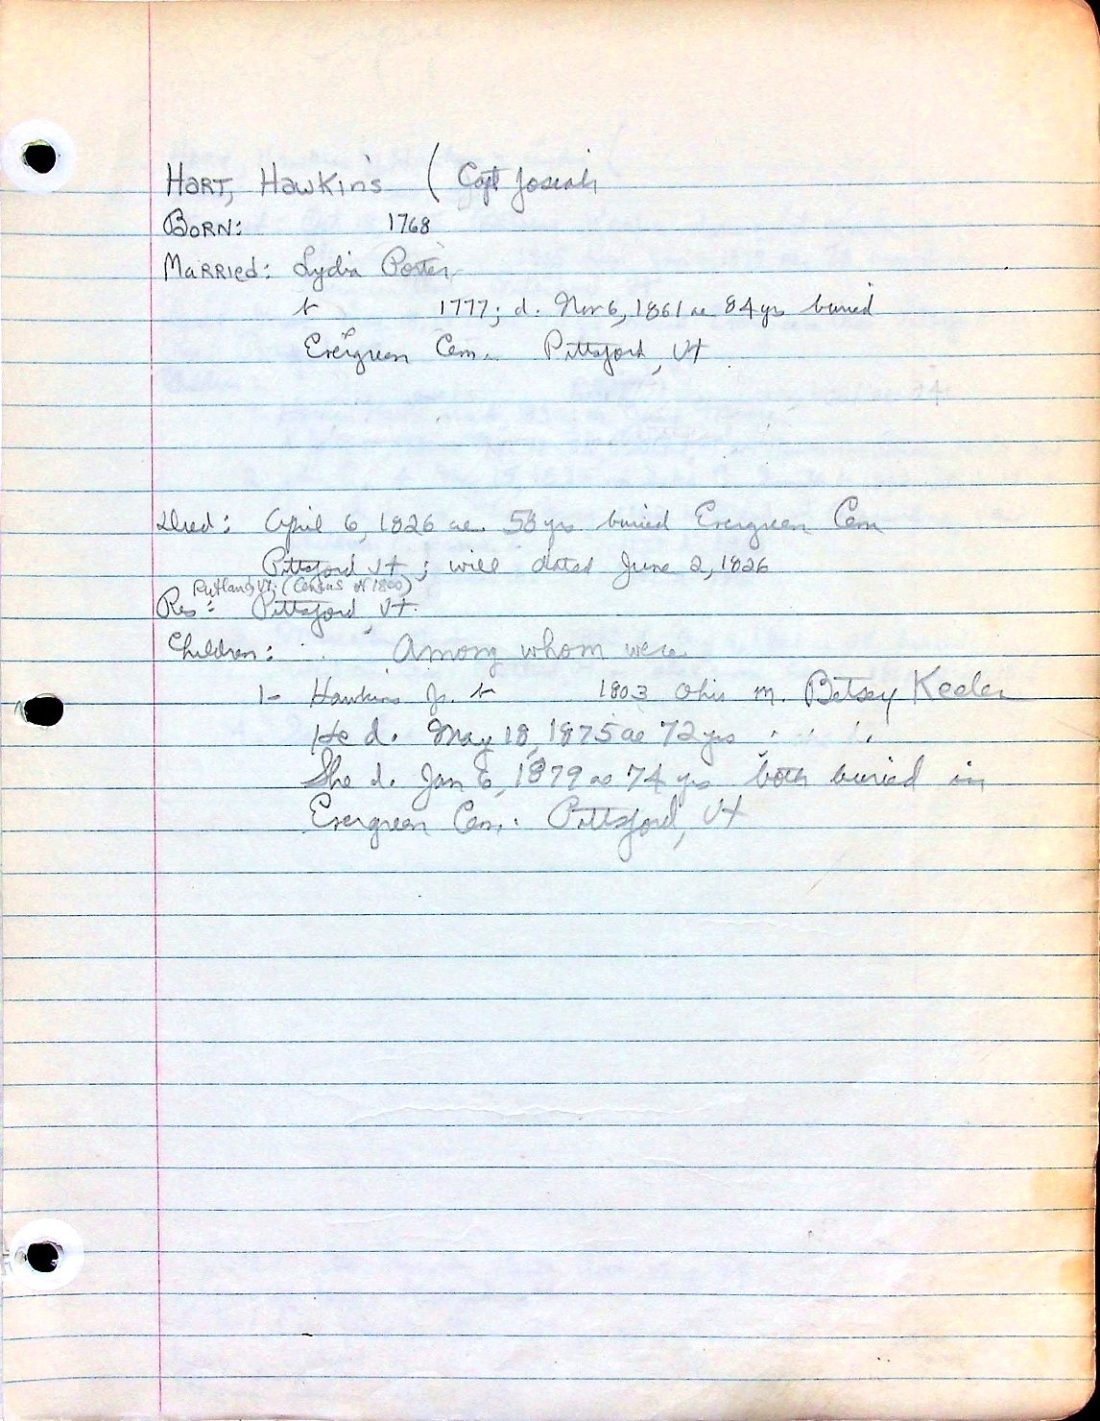 HART, Hawkins ( Capt Josiah
BORN: 1768
MARRIed: Lydia Porter
b 1777; d. Nov 6, 1861 ae 84 yrs buried
Evergreen Cem. Pittsford, Vt
Died: April 6, 1826 ae. 58 yrs buried Evergreen Cem
Pittsford Vt; will dated June 2, 1826
Rutland, Vt. (Census of 1800)
Res: Pittsford, Vt.
Children: Among whom were
1- Hawkins Jr. b 1803 Ohio m. Betsey Keeler
He d. May 18, 1875 ae 72 yrs
She d. Jan 6, 1879 ae 74 yrs both buried in
Evergreen Cem. Pittsford, Vt